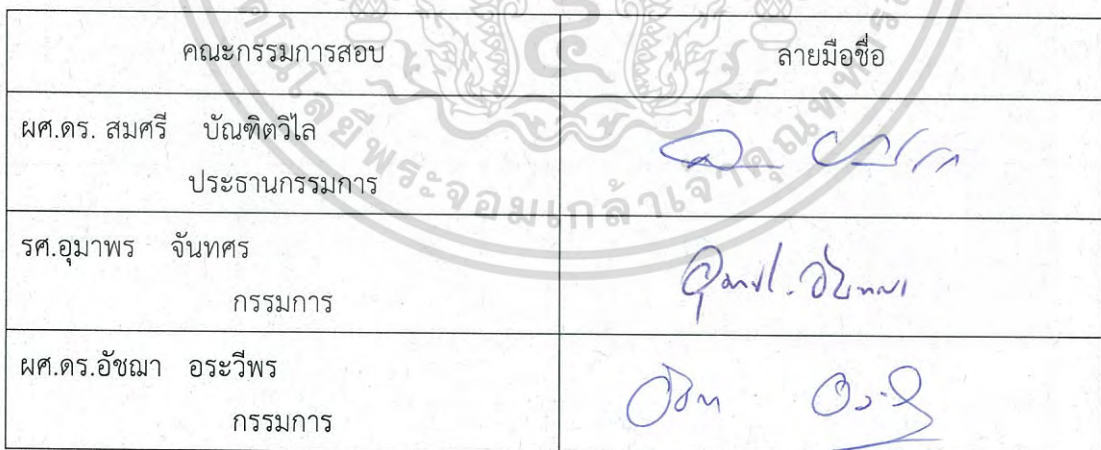 คณะกรรมการสอบ ลายมือชื่อ
ผศ.ดร. สมศรี บัณฑิตวิไล
ประธานกรรมการ
รศ.อุมาพร จันทศร
กรรมการ
ผศ.ดร.อัชฌา อระวีพร
กรรมการ
พระจอมเกล้าเจ้าคุณทหาร